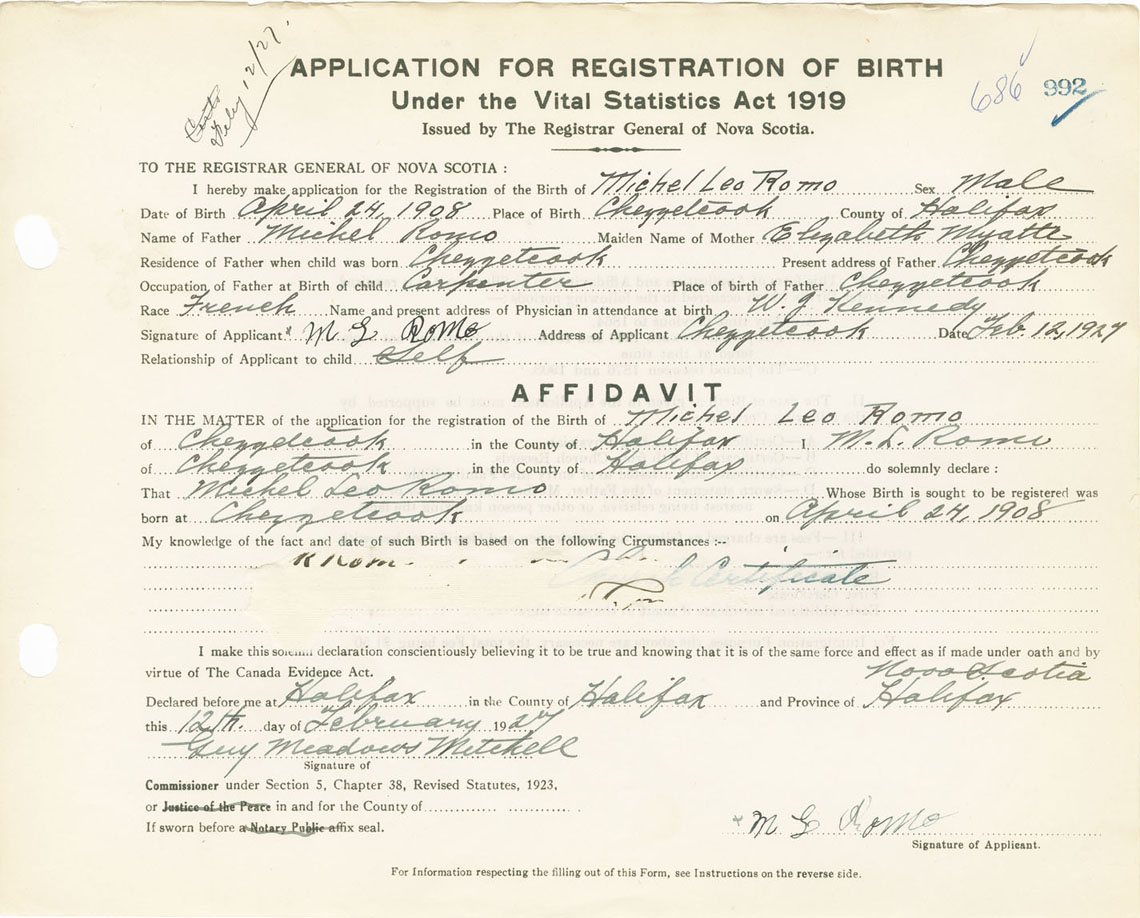 Feby 12/27.
APPLICATION FOR REGISTRATION OF BIRTH
686 992
Under the Vital Statistics Act 1919
Issued by The Registrar General of Nova Scotia.
TO THE REGISTRAR GENERAL OF NOVA SCOTIA :
I hereby make application for the Registration of the Birth of Michel Leo Romo Sex Male
Date of Birth April 24, 1908 Place of Birth Chezzetcook County of Halifax
Name of Father Michel Romo Maiden Name of Mother Elizabeth Myatte
Residence of Father when child was born Chezzetcook Present address of Father Chezzetcook
Occupation of Father at Birth of child Carpenter Place of birth of Father Chezzetcook
Race French Name and present address of Physician in attendance at birth W J Kennedy
Signature of Applicant M L Romo Address of Applicant Chezzetcook Date Feb. 12, 1927
Relationship of Applicant to child Self
AFFIDAVIT
IN THE MATTER of the application for the registration of the Birth of Michel Leo Romo
of Chezzetcook in the County of Halifax I, M. L. Romo
of Chezzetcook in the County of Halifax do solemnly declare :
That Michel Leo Romo Whose Birth is sought to be registered was
born at Chezzetcook on April 24, 1908
My knowledge of the fact and date of such Birth is based on the following Circumstances :--
Certificate
I make this solemn declaration conscientiously believing it to be true and knowing that it is of the same force and effect as if made under oath and by
virtue of The Canada Evidence Act. Nova Scotia
Declared before me at Halifax in the County of Halifax and Province of Halifax
this 12th day of February 1927
Guy Meadows Mitchell
Signature of
Commissioner under Section 5, Chapter 38, Revised Statutes, 1923,
or Justice of the Peace in and for the County of
If sworn before a Notary Public affix seal.
M L Romo
Signature of Applicant.
For Information respecting the filling out of this Form, see Instructions on the reverse side.